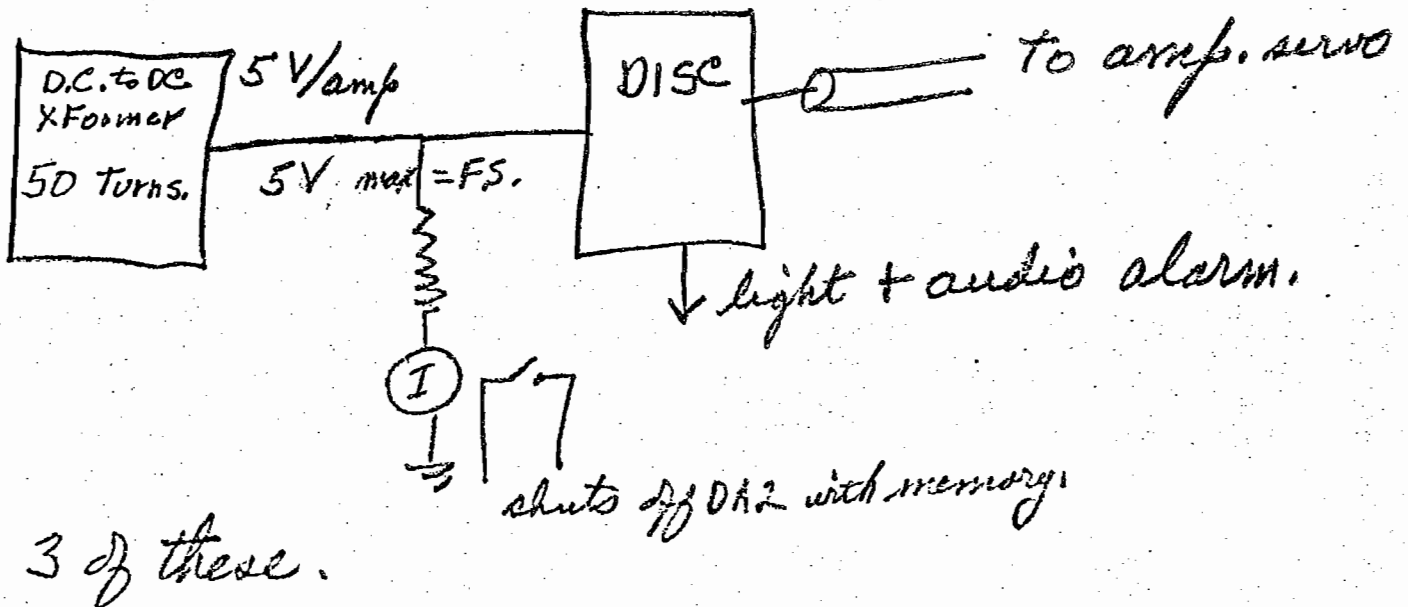 D.C. to DC
XFormer
50 Turns.
5 V/amp
5V max = F.S.
DISC
To amp. servo
light + audio alarm.
I
shuts off DA2 with memory.
3 of these.